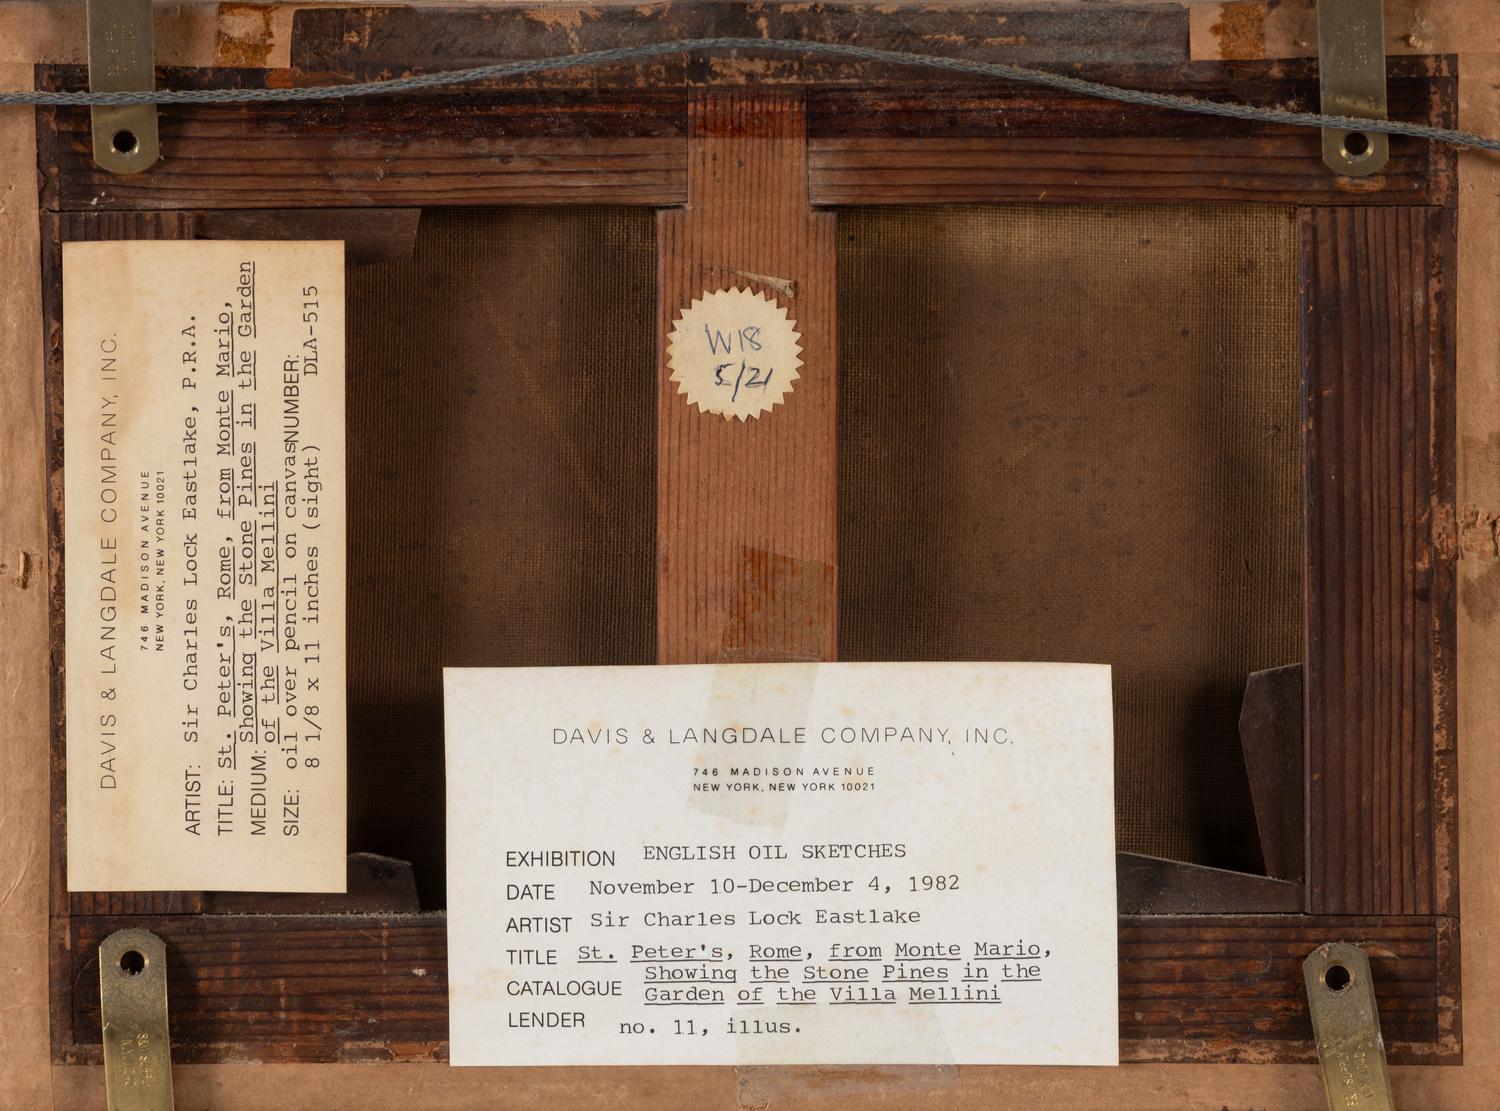 St Peters
DAVIS & LANGDALE COMPANY, INC.
746 MADISON AVENUE
NEW YORK, NEW YORK 10021
ARTIST: Sir Charles Lock Eastlake, P.R.A.
TITLE: St. Peter's, Rome, from Monte Mario,
Showing the Stone Pines in the Garden
MEDIUM: of the Villa Mellini
oil over pencil on canvas NUMBER:
SIZE: 8 1/8 x 11 inches (sight) DLA-515
W18
5/21
DAVIS & LANGDALE COMPANY, INC.
746 MADISON AVENUE
NEW YORK, NEW YORK 10021
EXHIBITION ENGLISH OIL SKETCHES
DATE November 10-December 4, 1982
ARTIST Sir Charles Lock Eastlake
TITLE St. Peter's, Rome, from Monte Mario,
Showing the Stone Pines in the
CATALOGUE Garden of the Villa Mellini
LENDER no. 11, illus.